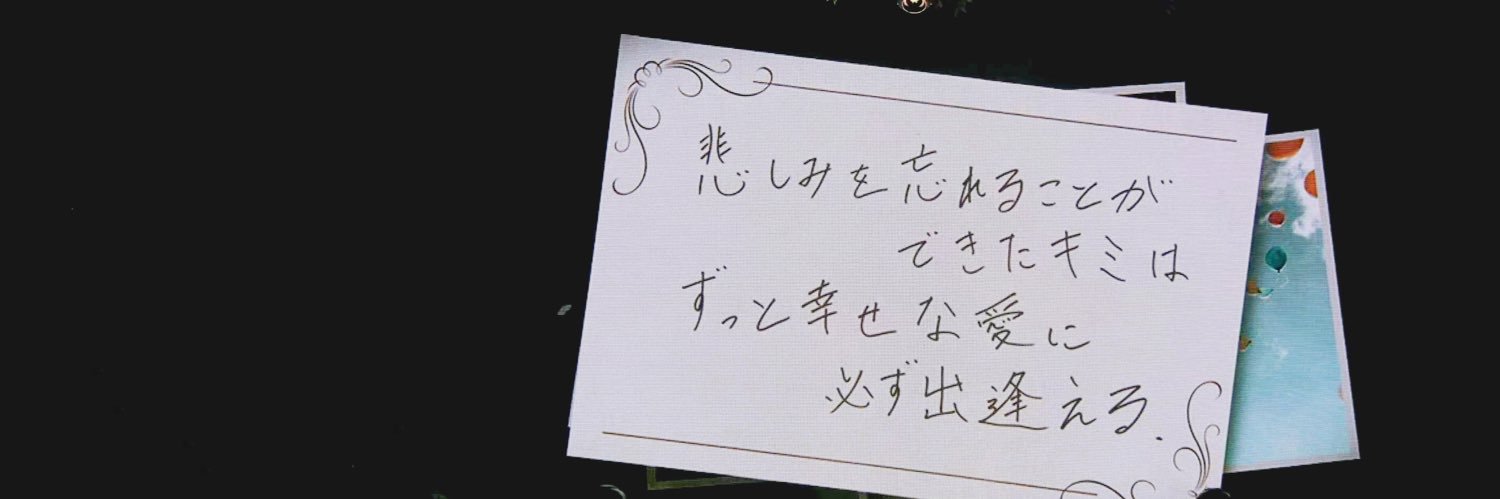 悲しみを忘れることが
できたキミは
ずっと幸せな愛に
必ず出逢える.